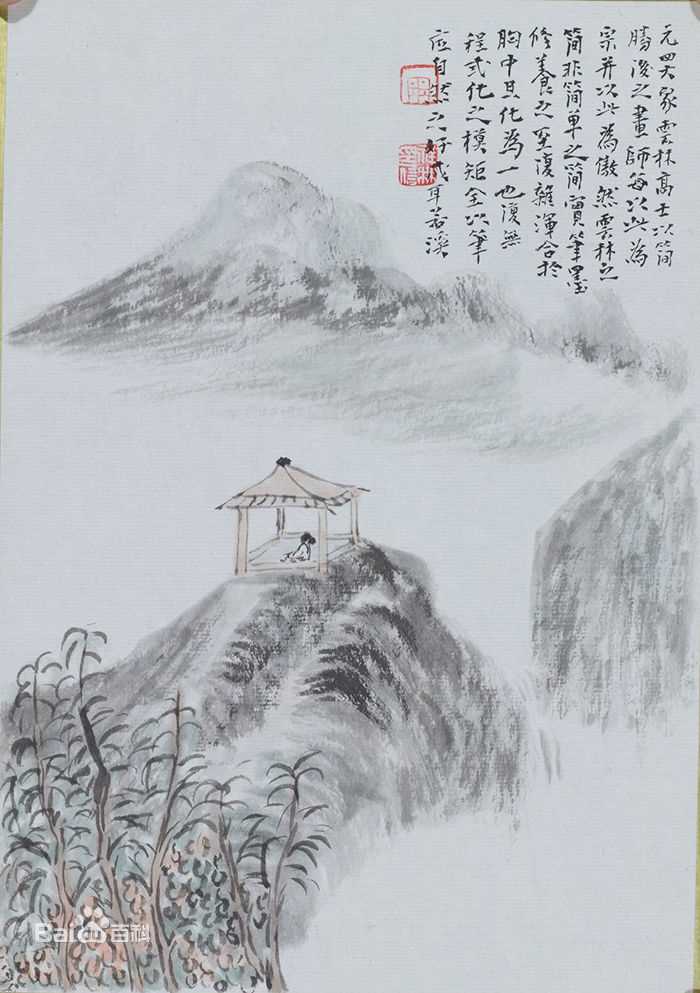 元四大家雲林高士以簡
勝後之畫師每以此為
宗并以此為傲然雲林之
簡非簡單之簡實筆墨
修養之至復雜渾合於
胸中且化為一也復無
程式化之模矩全以筆
应自然之好耳若溪
Bai百科